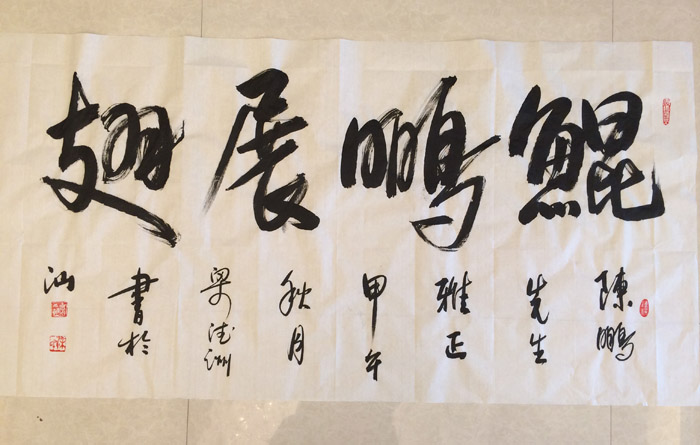 鯤鵬展翅
陳鵬
先生
雅正
甲午
秋月
梁德洲
書於
汕